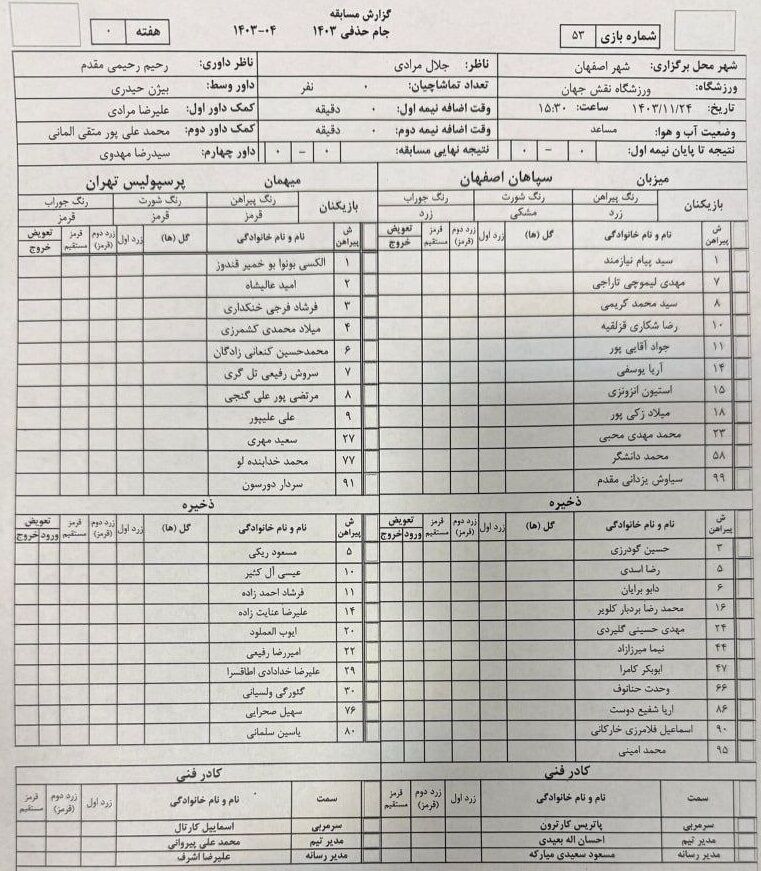 گزارش مسابقه
جام حذفی ۱۴۰۳ ۱۴۰۳-۰۴
شماره بازی ۵۳
هفته ۰
شهر محل برگزاری: شهر اصفهان ناظر: جلال مرادی ناظر داوری: رحیم رحیمی مقدم
ورزشگاه: ورزشگاه نقش جهان تعداد تماشاچیان: ۰ نفر داور وسط: بیژن حیدری
تاریخ: ۱۴۰۳/۱۱/۲۴ ساعت: ۱۵:۳۰ وقت اضافه نیمه اول: ۰ دقیقه کمک داور اول: علیرضا مرادی
وضعیت آب و هوا: مساعد وقت اضافه نیمه دوم: ۰ دقیقه کمک داور دوم: محمد علی پور متقی المانی
نتیجه تا پایان نیمه اول: ۰ - ۰ نتیجه نهایی مسابقه: ۰ - ۰ داور چهارم: سیدرضا مهدوی
میزبان سپاهان اصفهان
بازیکنان رنگ پیراهن رنگ شورت رنگ جوراب
زرد مشکی زرد
ش پیراهن نام و نام خانوادگی گل (ها) زرد اول زرد دوم (قرمز) قرمز مستقیم تعویض خروج
۱ سید پیام نیازمند
۷ مهدی لیموچی تاراجی
۸ سید محمد کریمی
۱۰ رضا شکاری قزلقیه
۱۱ جواد آقایی پور
۱۴ آریا یوسفی
۱۵ استیون انزونزی
۱۸ میلاد زکی پور
۲۳ محمد مهدی محبی
۵۸ محمد دانشگر
۹۹ سیاوش یزدانی مقدم
ذخیره
ش پیراهن نام و نام خانوادگی گل (ها) زرد اول زرد دوم (قرمز) قرمز مستقیم تعویض ورود خروج
۳ حسین گودرزی
۵ رضا اسدی
۶ دابو برایان
۱۶ محمد رضا بردبار کلویر
۲۴ مهدی حسینی گلیردی
۴۴ نیما میرزازاد
۴۷ ابوبکر کامرا
۶۶ وحدت حنانوف
۸۶ اریا شفیع دوست
۹۰ اسماعیل فلامرزی خارکانی
۹۵ محمد امینی
کادر فنی
سمت نام و نام خانوادگی زرد اول زرد دوم (قرمز) قرمز مستقیم
سرمربی پاتریس کارترون
مدیر تیم احسان اله بعیدی
مدیر رسانه مسعود سعیدی مبارکه
میهمان پرسپولیس تهران
بازیکنان رنگ پیراهن رنگ شورت رنگ جوراب
قرمز قرمز قرمز
ش پیراهن نام و نام خانوادگی گل (ها) زرد اول زرد دوم (قرمز) قرمز مستقیم تعویض خروج
۱ الکسی بونوا بو خمیر قندوز
۲ امید عالیشاه
۳ فرشاد فرجی خنکداری
۴ میلاد محمدی کشمرزی
۶ محمدحسین کنعانی زادگان
۷ سروش رفیعی تل گری
۸ مرتضی پور علی گنجی
۹ علی علیپور
۲۷ سعید مهری
۷۷ محمد خدابنده لو
۹۱ سردار دورسون
ذخیره
ش پیراهن نام و نام خانوادگی گل (ها) زرد اول زرد دوم (قرمز) قرمز مستقیم تعویض ورود خروج
۵ مسعود ریکی
۱۰ عیسی آل کثیر
۱۱ فرشاد احمد زاده
۱۴ علیرضا عنایت زاده
۲۰ ایوب العملود
۲۲ امیررضا رفیعی
۲۹ علیرضا خدادادی اطاقسرا
۳۰ گئورگی ولسیانی
۷۶ سهیل صحرایی
۸۰ یاسین سلمانی
کادر فنی
سمت نام و نام خانوادگی زرد اول زرد دوم (قرمز) قرمز مستقیم
سرمربی اسماییل کارتال
مدیر تیم محمد علی پیروانی
مدیر رسانه علیرضا اشرف